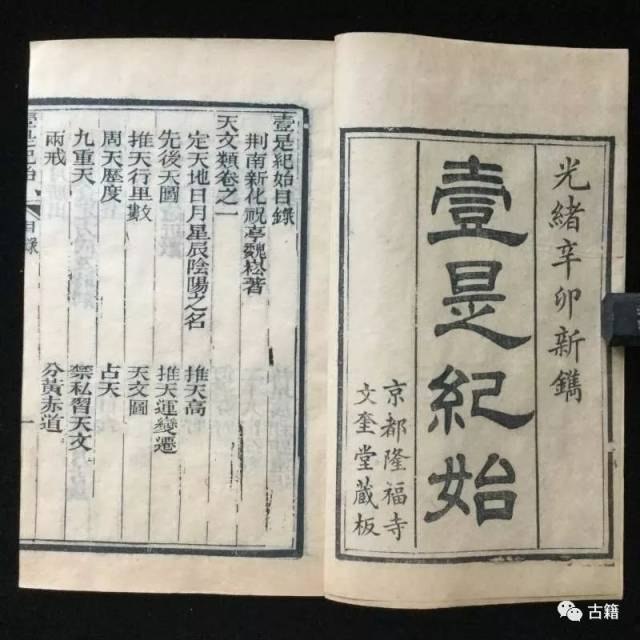 光緒辛卯新鐫
壹是紀始
京都隆福寺
文奎堂藏板
壹是紀始目錄
荆南新化祝亭魏崧著
天文類卷之一
定天地日月星辰陰陽之名
推天高
先後天圖
推天運變遷
推天行里數
天文圖
周天歷度
占天
九重天
禁私習天文
兩戒
分黃赤道
壹是紀始
目錄
一
古籍